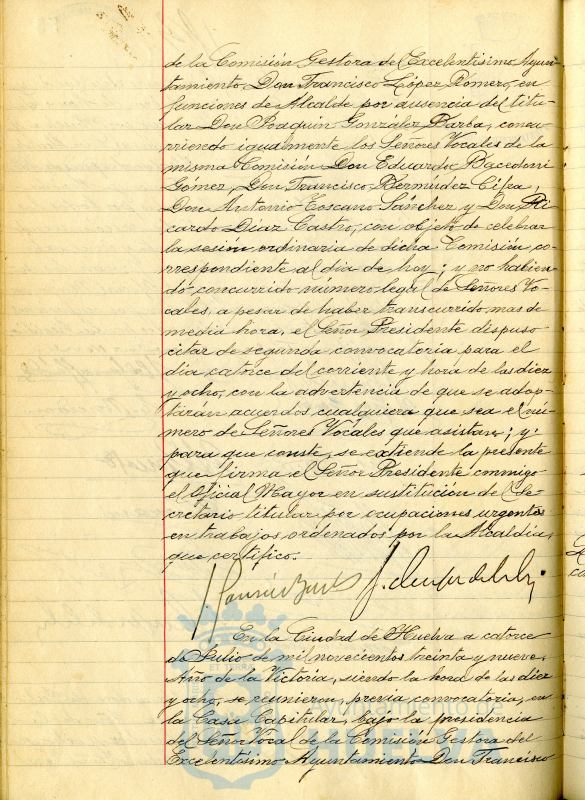 de la Comisión Gestora del Excelentísimo Ayun-
tamiento, Don Francisco López Romero, en
funciones de Alcalde por ausencia del titu-
lar Don Joaquín González Barba, concu-
rriendo igualmente los Señores Vocales de la
misma Comisión Don Eduardo
Gómez, Don Francisco Bermúdez Cifra,
Don Antonio Toscano Sánchez y Don Ri
cardo Díaz Castro, con objeto de celebrar
la sesión ordinaria de dicha Comisión, co-
rrespondiente al día de hoy; y no habien-
do concurrido número legal de Señores Vo-
cales, a pesar de haber transcurrido mas de
media hora, el Señor Presidente dispuso
citar de segunda convocatoria para el
día catorce del corriente y hora de las diez
y ocho, con la advertencia de que se adop-
tarán acuerdos cualquiera que sea el nú-
mero de Señores Vocales que asistan; y
para que conste, se extiende la presente
que firma el Señor Presidente conmigo
el Oficial Mayor en sustitución del Se-
cretario titular por ocupaciones urgentes
en trabajos ordenados por la Alcaldía,
que certifico.
En la Ciudad de Huelva a catorce
de Julio de mil novecientos treinta y nueve,
Año de la Victoria, siendo la hora de las diez
y ocho, se reunieron, previa convocatoria, en
la Casa Capitular, bajo la presidencia
del Señor Vocal de la Comisión Gestora del
Excelentísimo Ayuntamiento Don Francisco
Ayuntamiento de
HUELVA